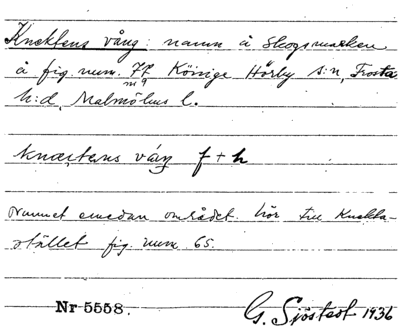 Knektens vång: namn å skogsmarken
å fig. num. 77 Könige Hörby s:n, Frosta
m 9
h:d, Malmöhus l.
knæktens våŋ f + h
Namnet emedan området hör till Knekta-
stället fig. num 65.
Nr 5558. G. Sjöstedt 1936